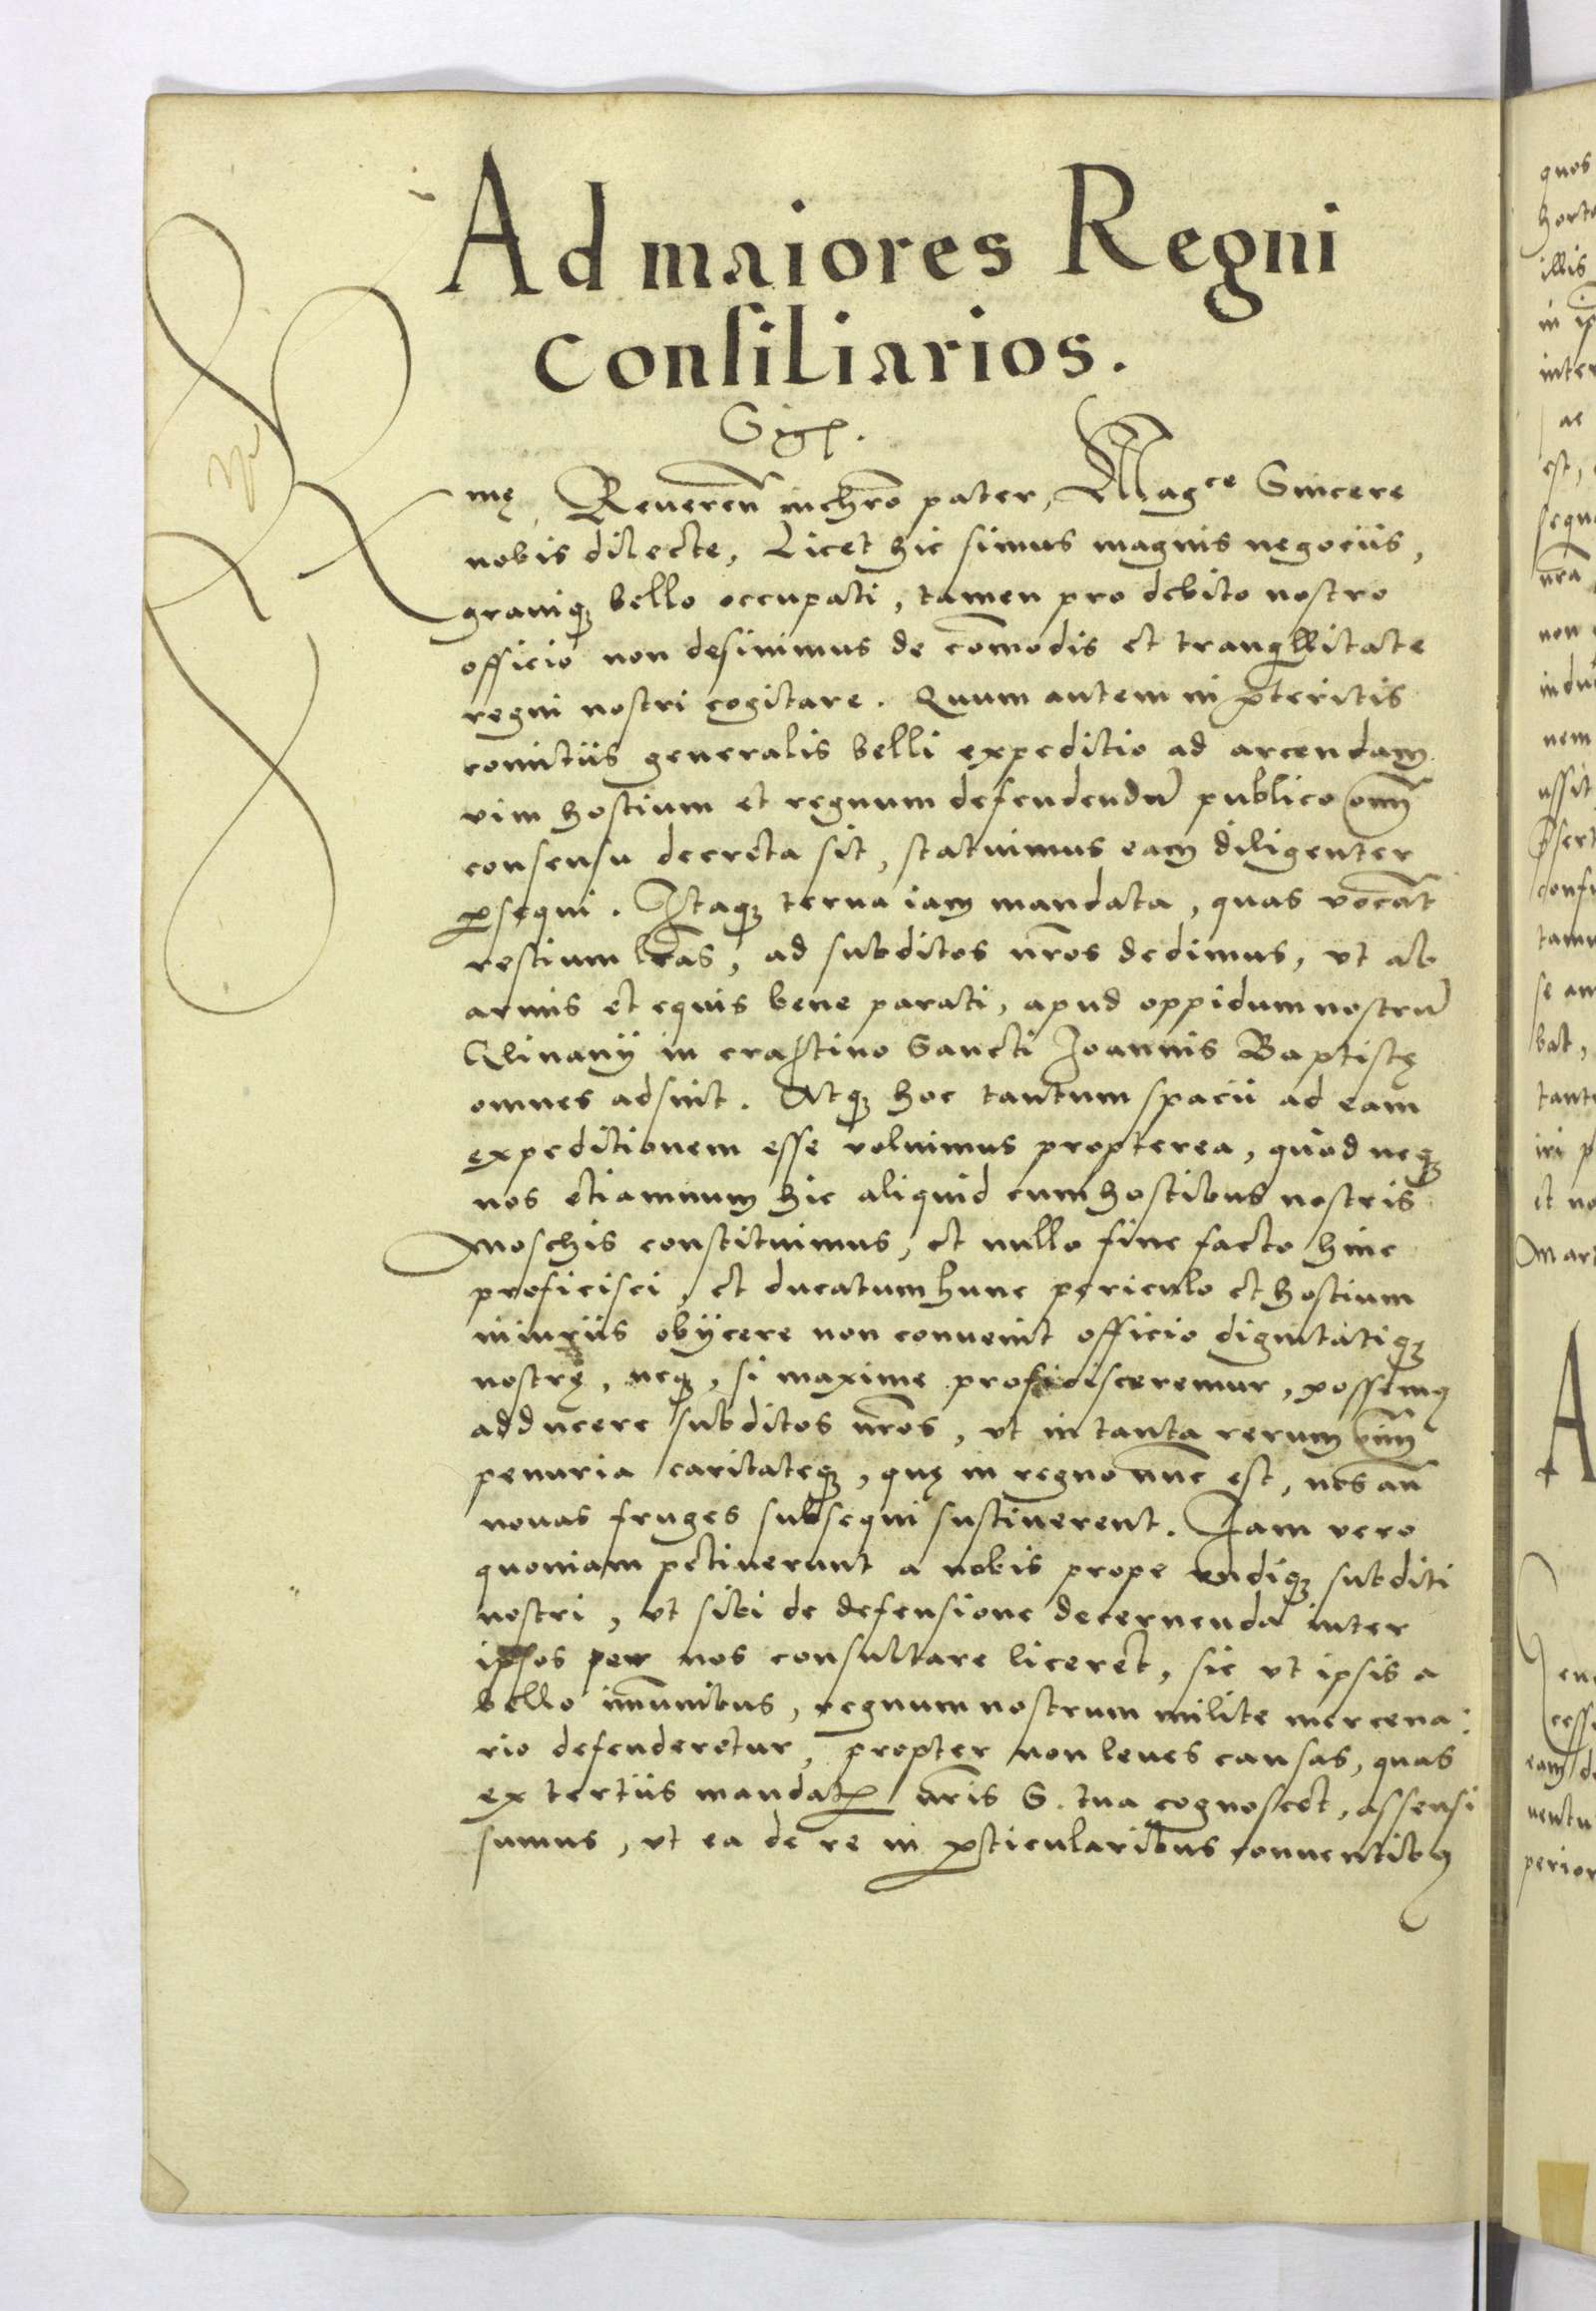 Ad maiores Regni
consiliarios.
Sigs.
R
mę, Reueren̄ in chr̄o pater, Magce Sincere
nobis dilecte, Licet hic simus magnis negociis,
grauiq; bello occupati, tamen pro debito nostro
officio non desinimus de com̄odis et tranqllitate
regni nostri cogitare. Quum autem in p̄teritis
comitiis generalis belli expeditio ad arcendam
vim hostium et regnum defendendū publico om̄
consensu decreta sit, statuimus eam diligenter
ꝑsequi. Itaq; terna iam mandata, quas vocāt
restium lr̄as, ad subditos nr̄os dedimus, vt ab
armis et equis bene parati, apud oppidum nostrū
Glinany in crastino Sancti Joannis Baptistę
omnes adsint. Atq; hoc tantum spacii ad eam
expeditionem esse voluimus propterea, quòd neq;
nos etiamnum hic aliquid cum hostibus nostris
Moschis constituimus, et nullo fine facto hinc
proficisci, et ducatum hunc periculo et hostium
iniuriis obÿcere non conuenit officio dignitatiq;
nostrę, neq;, si maxime proficisceremur, possemꝰ
adducere subditos nr̄os, vt in tanta rerum om̄
penuria caritateq;, quę in regno nūc est, nos an̄
nouas fruges subsequi sustinerent. Iam vero
quoniam petiuerunt a nobis prope vndiq; subditi
nostri, vt sibi de defensione decernenda inter
ipsos per nos consultare liceret, sic vt ipsis a
bello im̄unibus, regnum nostrum milite mercena:
rio defenderetur, propter non leues causas, quas
ex tertiis mandatꝭ nr̄is S. tua cognoscet, assensi
sumus, vt ea de re in ꝑticularibus conuentibꝰ
quos
horta
illis
in ip
inter
ac
est,
sequ
nr̄a
non
indu
nem
ussit
conf
tam
se an
bat,
tant
iri p
et no
Mar
A
cess
eam d
uentu
perior